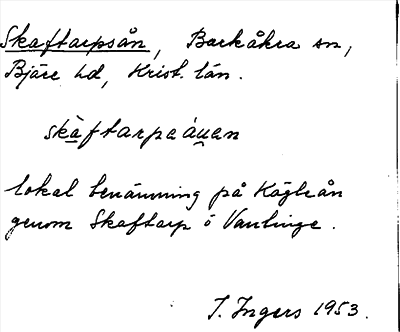 Skaftarpsån, Barkåkra sn,
Bjäre hd, Krist. län.
skàftarpaáuan
lokal benämning på Kägleån
genom Skaftarp i
I. Ingers 1953.